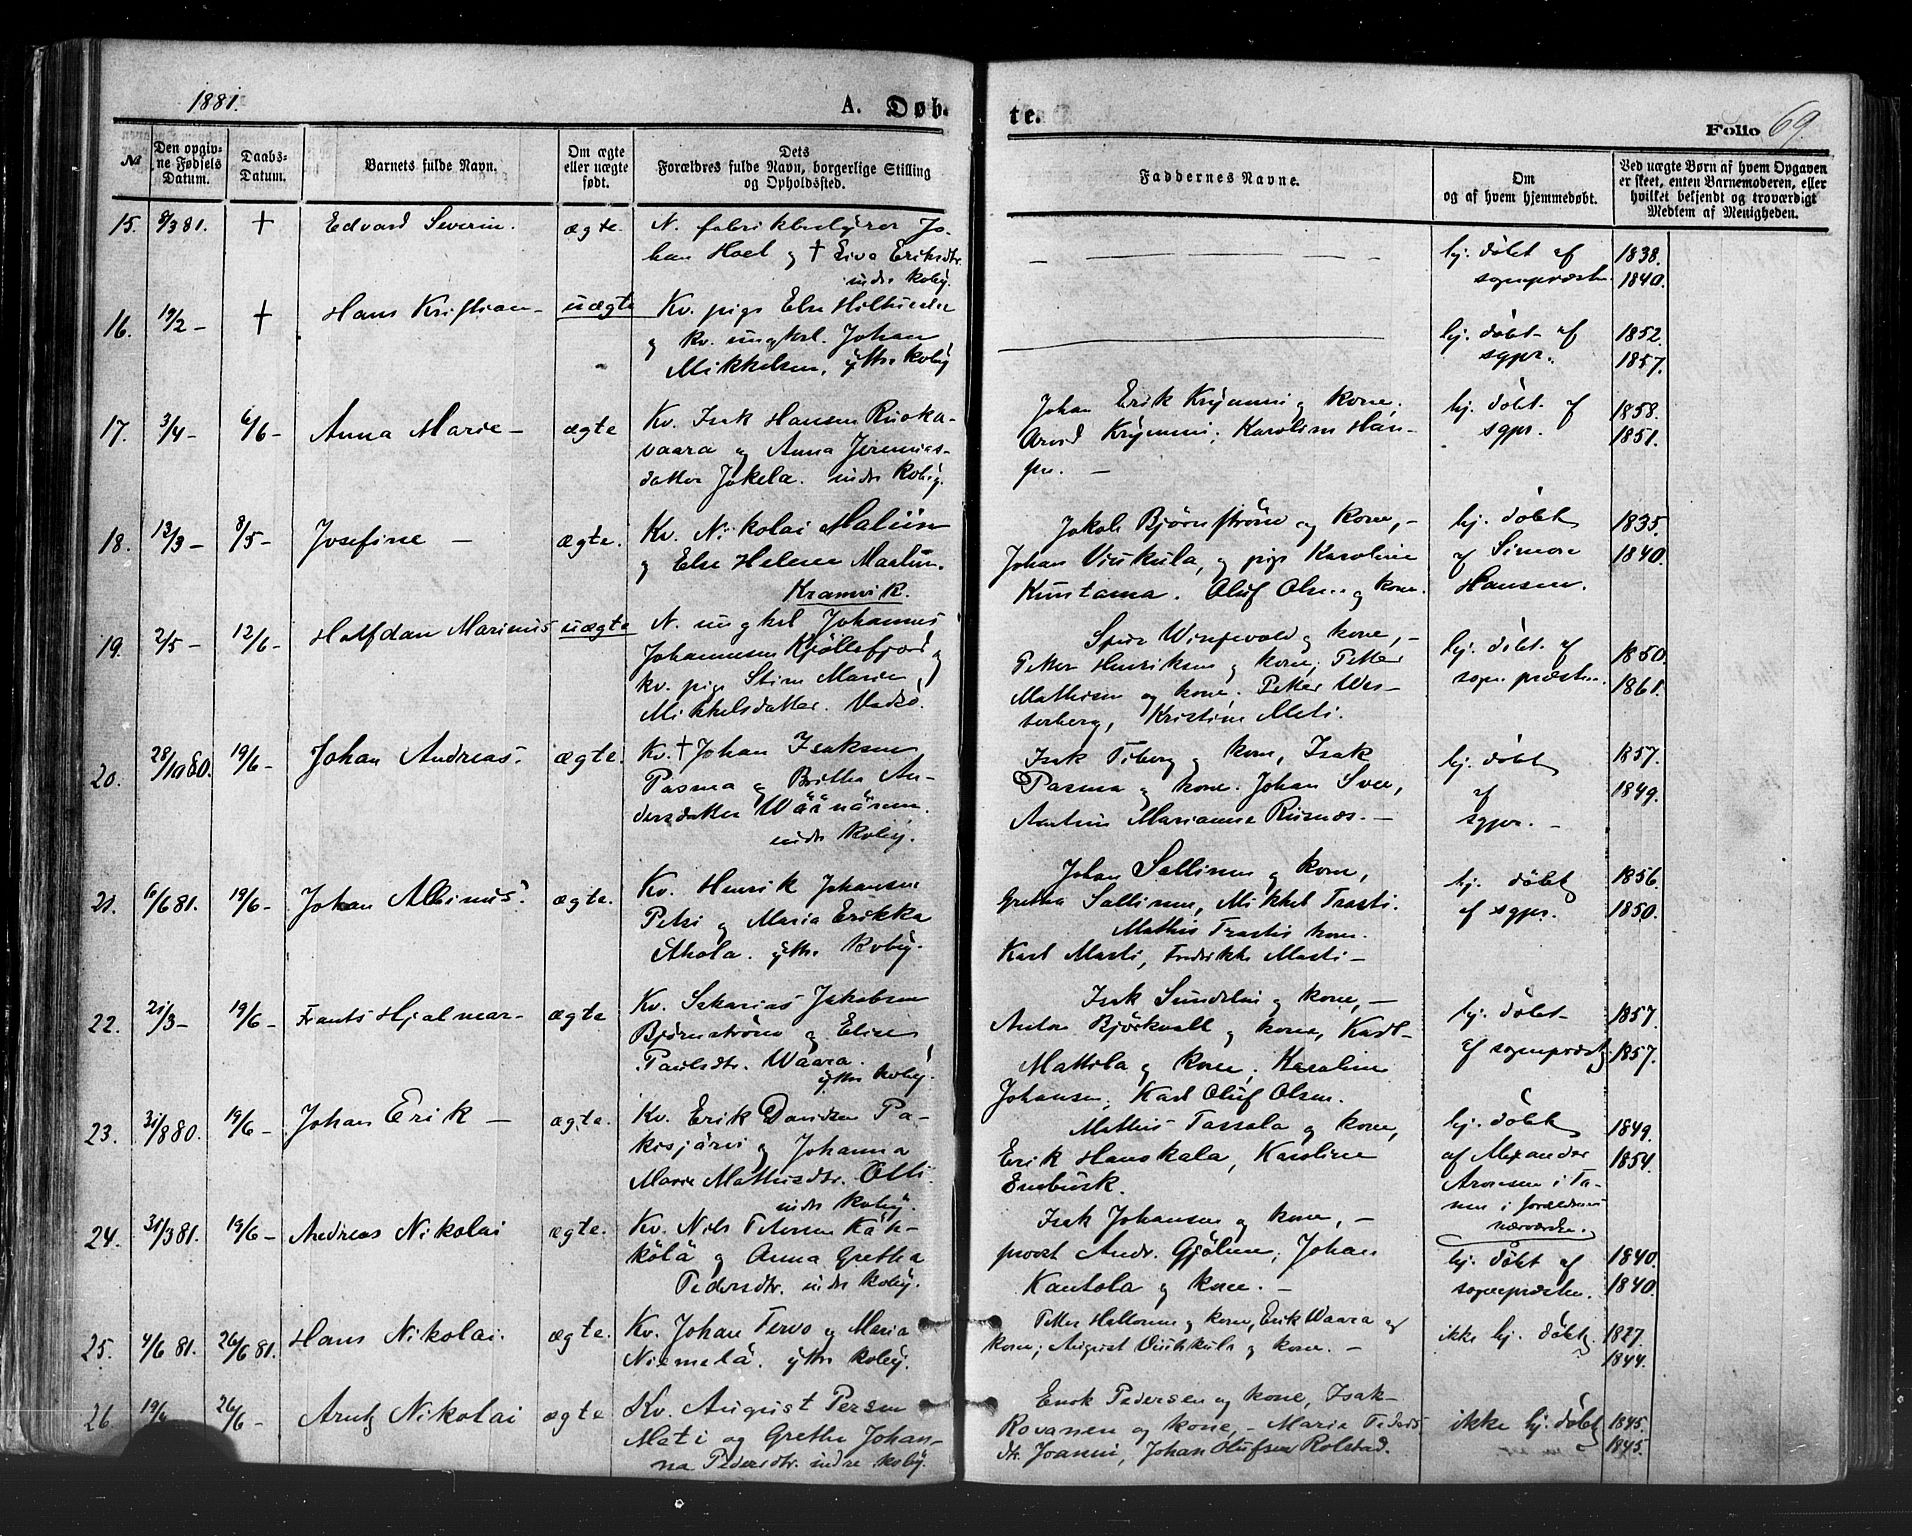 1881.
A. Døb-
te.
Folio 69.
№
Den opgiv-
ne Fødsels
Datum.
Daabs-
Datum.
Barnets fulde Navn.
Om ægte
eller uægte
født.
Dets
Forældres fulde Navn, borgerlige Stilling
og Opholdssted.
Faddernes Navne.
Om
og af hvem hjemmedøbt.
Ved uægte Børn af hvem Opgaven
er skeet, enten Barnemoderen, eller
hvilket bekjendt og troværdigt
Medlem af Menigheden.
15. 8/3 81. † Edvard Severin. ægte.
N. fabrikbestyrer Jo-
han Hoel og † Eriksdtr.
indre Koby.
hj. døbt af
sognepræsten
1838.
1840.
16. 19/2 - † Hans Kristian - uægte
Kv. pige Else
og kv. ungkrl. Johan
Mikkelsen, yttre Koby
hj. døbt af
sgpr.
1852.
1857.
17. 3/4 - 6/6 - Anna Marie - ægte
Kv. Isak Hansen Ruoka-
vaara og Anna Jeremias-
datter Jokela. indre Koby.
Johan Erik Krymmi og kone.
Arvid Krymmi; Karoline Han-
hj. døbt af
sgpr.
1858.
1851.
18. 12/3 - 8/5 - Josefine - ægte.
Kv. Nikolai
og Else Helene
Kramvik.
Jakob Bjørnstrøm og kone, -
Johan og pige Karoline
Oluf Olsen og kone.
hj. døbt
af Simon
Hansen.
1835.
1840.
19. 2/5 - 12/6 - Halfdan Marinus uægte
N. ungkrl Johannes
Johannesen Kjøllefjord og
kv. pige Stine Marie
Mikkelsdatter. Vadsø.
og kone, -
Petter Henriksen og kone; Petter
Mathisen og kone. Peter Wes-
terberg, Kristine Meti.
hj. døbt af
sognepræsten.
1850.
1861.
20. 28/10 80. 19/6 - Johan Andreas. ægte.
Kv. † Johan Isaksen
Pasma og Britha An-
dersdatter Wäänänen.
indre Koby.
Isak Tiberg og kone, Isak
Pasma og kone. Johan
Marianne
hj. døbt
af
sgpr. -
1857.
1849.
21. 6/6 81. 19/6 - Johan Albinus. ægte.
Kv. Henrik Johansen
og Maria Erikka
yttre Koby.
Johan Sallinen og kone,
Gretha Sallinen, Mikkel Trasti.
Mathis kone.
Karl Masti, Fredrikke Masti -
hj. døbt
af sgpr.
1856.
1850.
22. 21/3 - 19/6 - Frants Hjalmar - ægte
Kv. Sakarias Jakobsen
Bjørnstrøm og Elise
Paulsdtr. Waara.
yttre Koby.
Isak og kone, -
Anton Bjørkvall og kone, Karl
Mattila og kone. Karoline
Johansen, Karl Oluf Olsen.
hj. døbt
af sognepræst.
1857.
1857.
23. 31/8 80. 19/6 - Johan Erik - ægte.
Kv. Erik Davidsen Pa-
kisjärvi og Johanna
Marie Mathisdtr. Olli.
indre Koby.
Mathis Tassala og kone,
Erik Hanskala, Karoline
Enebusk.
hj. døbt
af Alexander
Aronsen i Ta-
nen i forældrenes
nærværelse.
1849.
1854.
24. 31/3 81. 19/6 - Andreas Nikolai ægte.
Kv. Nils Petersen
og Anna Gretha
Pedersdtr. indre Koby.
Isak Johansen og kone, -
provst Andr. Gjølme, Johan
Kantola og kone. -
hj. døbt af
sognepræsten.
1840.
1840.
25. 4/6 81. 26/6 81. Hans Nikolai. ægte.
Kv. Johan Tervo og Maria
Niemelä. yttre Koby.
Petter og kone, Erik Waara og
kone; August og kone. -
ikke hj. døbt
1827.
1844.
26. 19/6 26/6 - Arnt Nikolai ægte
Kv. August Persen
Mati og Grethe Johan-
na Pedersdtr. indre Koby.
Enok Pedersen og kone, Isak
Rovanen og kone, - Marie Peders-
dtr. Joanni, Johan Olufsen Rolstad.
ikke hj. døbt
1845.
1845.